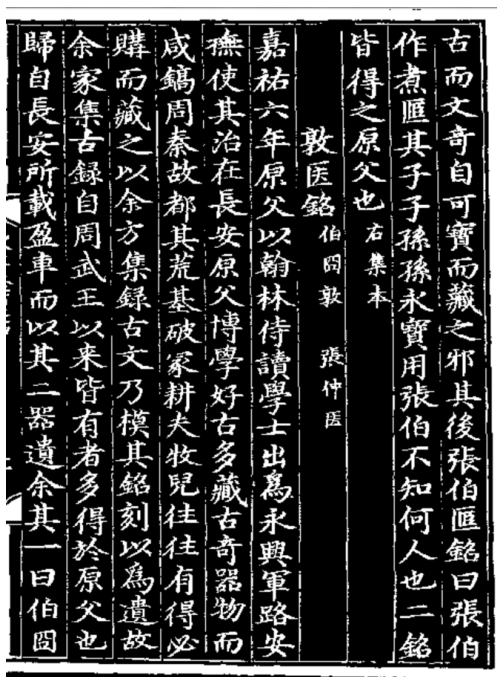 古而文竒自可寶而藏之邪其後張伯匜銘曰張伯
作煮匜其子子孫孫永寶用張伯不知何人也二銘
皆得之原父也右集本
敦医銘伯冏敦 張仲医
嘉祐六年原父以翰林侍讀學士出爲永興軍路安
撫使其治在長安原父博學好古多藏古奇器物而
咸鎬周秦故都其荒基破冢耕夫牧兒往往有得必
購而藏之以余方集録古文乃模其銘刻以爲遺故
余家集古録自周武王以来皆有者多得於原父也
歸自長安所載盈車而以其二器遺余其一曰伯冏